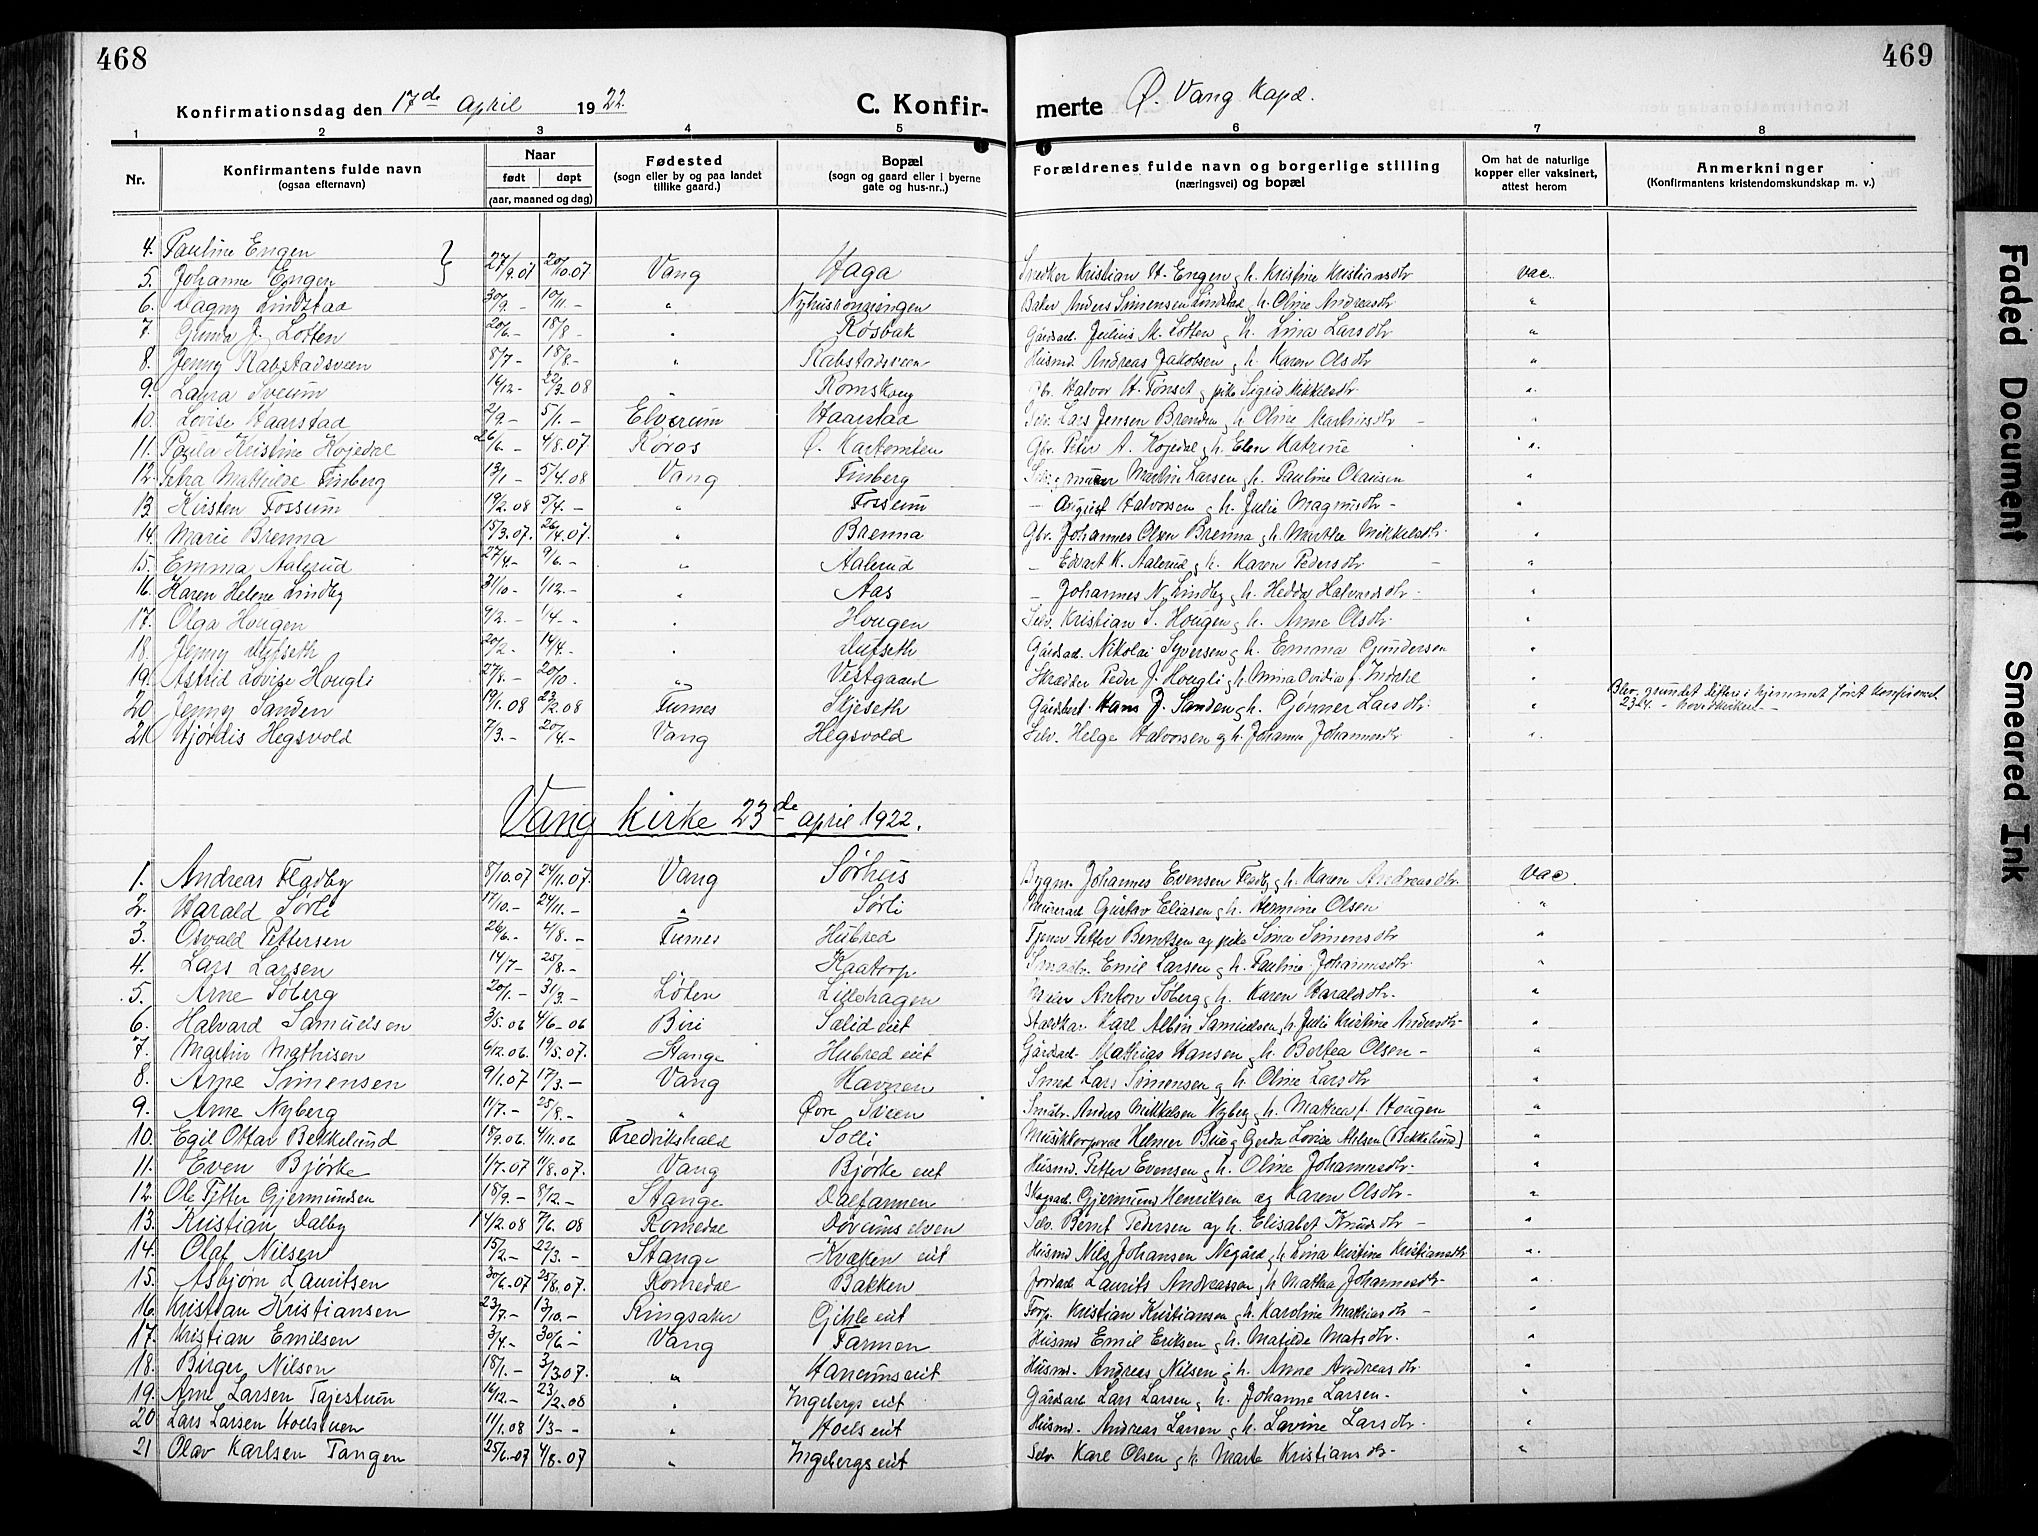 468
469
Konfirmationsdag den 17de April 1922.
C. Konfirmerte Ø. Vang Kapel.
1 2 3 4 5 6 7 8
Nr. Konfirmantens fulde navn (ogsaa efternavn) Naar født døpt (aar, maaned og dag) Fødested (sogn eller by og paa landet tillike gaard.) Bopæl (sogn og gaard eller i byerne gate og hus-nr.) Forældrenes fulde navn og borgerlige stilling (næringsvei) og bopæl Om hat de naturlige kopper eller vaksinert, attest herom Anmerkninger (Konfirmantens kristendomskundskap m. v.)
4. Pauline Engen
5. Johanne Engen 27/9.07 20/10.07. Vang Haga Snedker Kristian H. Engen og h. Kristine Kristiansdtr vac.
6. Dagny Lindstad 30/9. - 10/11. - " Anders Simensen Lindstad h. Oline Andreasdtr "
7. Gunda J. Lotten 20/6. - 18/8 - " Røsbak Gårdsarb. Julius M. Lotten og h. Lina Larsdtr "
8. Jenny Rabstadsveen 8/7 - 18/8 - " Rabstadsveen Husmd. Andreas Jakobsen og h. Karen Olsdtr "
9. Laura Sveum 14/12 - 22/3.08 " Romskoug Halvor H. Tønset og pike Sigrid Mikkelsdtr "
10. Lovise Haarstad 2/9. - 5/1. - Elverum Haarstad Selv. Lars Jensen Brenden og h. Oline Martinusdtr - "
11. Paula Kristine Kojedal 26/6. - 4/8.07. Røros Ø. Kaatomten Gbr. Peter A. Kojedal og h. Elen Katrine "
12. Petra Mathilde Finberg 13/1 - 5/4.08 Vang Finberg Martin Larsen og h. Pauline Olausen "
13. Kirsten Fossum 19/2.08 5/4. - " Fossum - August Halvorsen og h. Julie Magnusdtr - "
14. Marie Brenna 15/3.07. 26/4.07. " Brenna Gbr. Johannes Olsen Brenna og h. Marthe Mikkelsdtr. "
15. Emma Aalerud 27/4 - 9/6. - " Aalerud - Edvart K. Aalerud og h. Karen Pedersdtr - "
16. Karen Helene Lindby 31/10 - 1/12 - " Aas - Johannes N. Lindby og h. Hedda Halvardsdtr. "
17. Olga Hougen 9/2. - 1/4. - " Hougen Selv. Kristian S. Hougen og h. Anne Olsdtr. "
18. Jenny Aufseth 20/2. - 14/4. - " Aufseth Gårdsarb. Nikolai Syversen og h. Emma Gundersen "
19. Astrid Lovise Hougli 27/8. - 20/10. " Vestgaard Skrædder Peder J. Hougli og h. Mina Ovidia "
20. Jenny Sanden 19/1.08 23/2.08 Furnes Skjeseth Hans J. Sanden og h. Gønner Larsdtr. " Blev grundet difteri i hjemmet først konfirmert 23/4. - hovedkirken -
21. Hjørdis Hegsvold 7/3. - 20/4 - Vang Hegsvold Selv. Helge Halvorsen og h. Johanne Johannesdtr "
Vang kirke 23de april 1922.
1. Andreas Fladby 8/10.07 24/11.07. Vang Sørhus Bygm. Johannes Evensen Fladby og h. Karen Andreasdtr. vac.
2. Harald Sørli 17/10. - 24/11. - " Sørli Murerarb. Gustav Eliasen og h. Hermine Olsen "
3. Osvald Pettersen 26/6. - 4/8. - Furnes Hubred Tjener Petter Berntsen og pike Lina Simensdtr "
4. Lars Larsen 14/7 - 25/8. - Kaatorp Smabr. Emil Larsen og h. Pauline Johannesdtr. "
5. Arne Søberg 20/1. - 31/3. - Løten Lillehagen Meier Anton Søberg og h. Karen Haraldsdtr. "
6. Halvard Samuelsen 3/5.06 4/6 - 06 Biri Salid eiet Staldkar Karl Albin Samuelsen h. Julie Kristine Andersdtr - "
7. Martin Mathisen 6/12.06. 19/5.07. Stange Hubred eiet Gårdsarb. Mathias Hansen og h. Bertea Olsen - "
8. Arne Simensen 9/1.07 17/3. - Vang Havnen Smed Lars Simensen og h. Oline Larsdtr "
9. Arne Nyberg 11/7. - 25/8. - " Øvre Sveen Småbr. Anders Mikkelsen Nyberg og h. Mathea f. Hougen "
10. Egil Ottar Bekkelund 18/9.06 4/11.06 Fredrikshald Solli Musikkorporal Helmer Bue og Gerda Lovise Nilsen (Bekkelund) "
11. Even Bjørke 1/7.07 11/8.07. Vang Bjørke eiet Husmd. Petter Evensen og h. Oline Johannesdtr. "
12. Ole Petter Gjermundsen 18/9. - 8/12. - Stange Dalfarmen Skogsarb. Gjermund Henriksen og Karen Olsdtr - "
13. Kristian Dalby 14/2.08 7/6.08 Romedal Døvums elven Selv. Bernt Pedersen og h. Elisabet Knudsdtr - "
14. Olaf Nilsen 15/2. - 22/3. - Stange Kvæken eiet Husmd Nils Johansen Negård h. Lina Kristine Kristiansdtr "
15. Asbjørn Lauritsen 30/6.07 25/8.07. Romedal Bakken Jordarb Laurits Andreassen og h. Mathea Johannesdtr - "
16. Kristian Kristiansen 23/7. - 13/10. - Ringsaker Gihle eiet Torp. Kristian Kristiansen og h. Karoline Mathiasdtr - "
17. Kristian Emilsen 3/4. - 30/6 - Vang Farmen Husmd Emil Eriksen og h. Matilde Matsdtr. "
18. Birger Nilsen 18/1. - 3/3.07. " Hanumseiet Husmd. Andreas Nilsen og h. Anne Andreasdtr "
19. Arne Larsen Tajestuen 16/12. - 23/2.08 " Ingebergs eiet Gårdsarb Lars Larsen og h. Johanne Larsen - "
20. Lars Larsen Hoelstuen 11/1.08 1/3 - - " Hoels eiet Husmd. Andreas Larsen og h. Lavine Larsdtr. "
21 Olav Karlsen Tangen 25/6.-07 4/8.-07 " Ingebergs eiet Selv. Karl Olsen og h. Marte Kristiansdtr - "
Faded Document
Smeared Ink